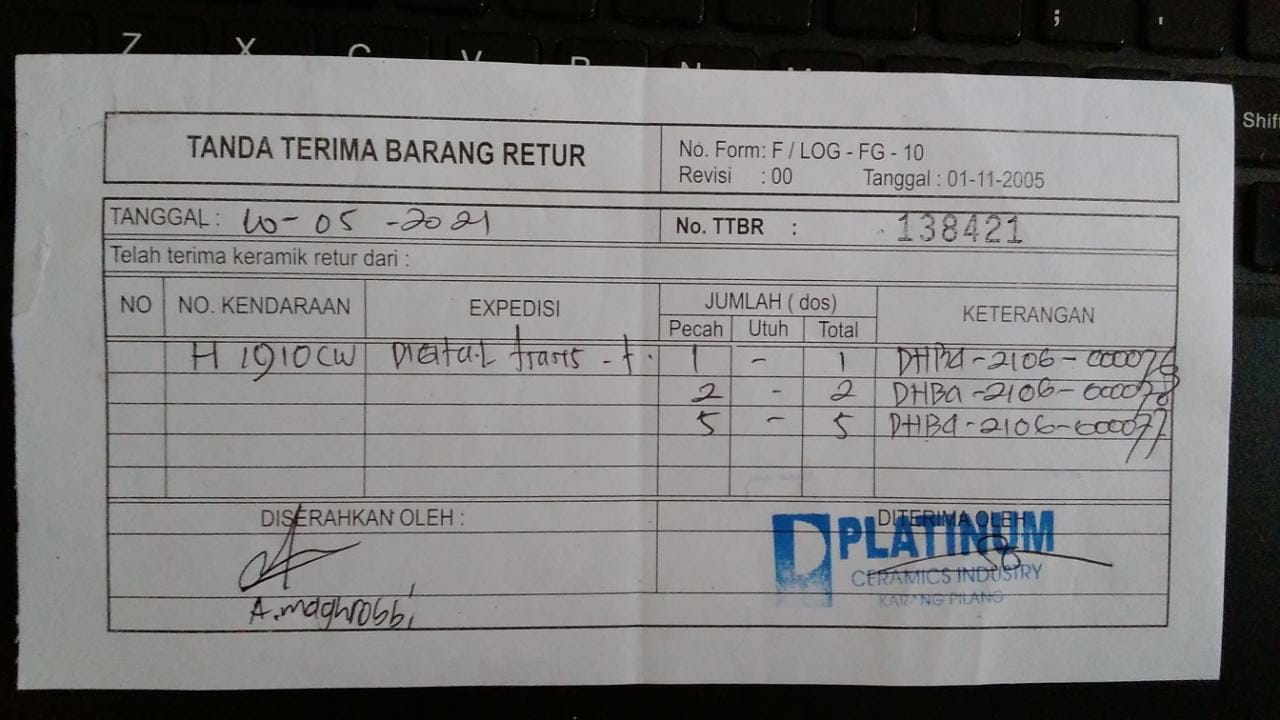 Z X C V B N M ; '
Shift
TANDA TERIMA BARANG RETUR
No. Form: F / LOG - FG - 10
Revisi : 00 Tanggal : 01-11-2005
TANGGAL : 10-05-2021
No. TTBR : 138421
Telah terima keramik retur dari :
NO NO. KENDARAAN EXPEDISI JUMLAH ( dos) KETERANGAN
Pecah Utuh Total
H 1910CW Digital trans - f. 1 - 1 DHBa-2106-000076
2 - 2 DHBa-2106-000078
5 - 5 DHBa-2106-000077
DISERAHKAN OLEH : DITERIMA OLEH
PLATINUM
CERAMICS INDUSTRY
KARANG PILANG
A.maghrobbi